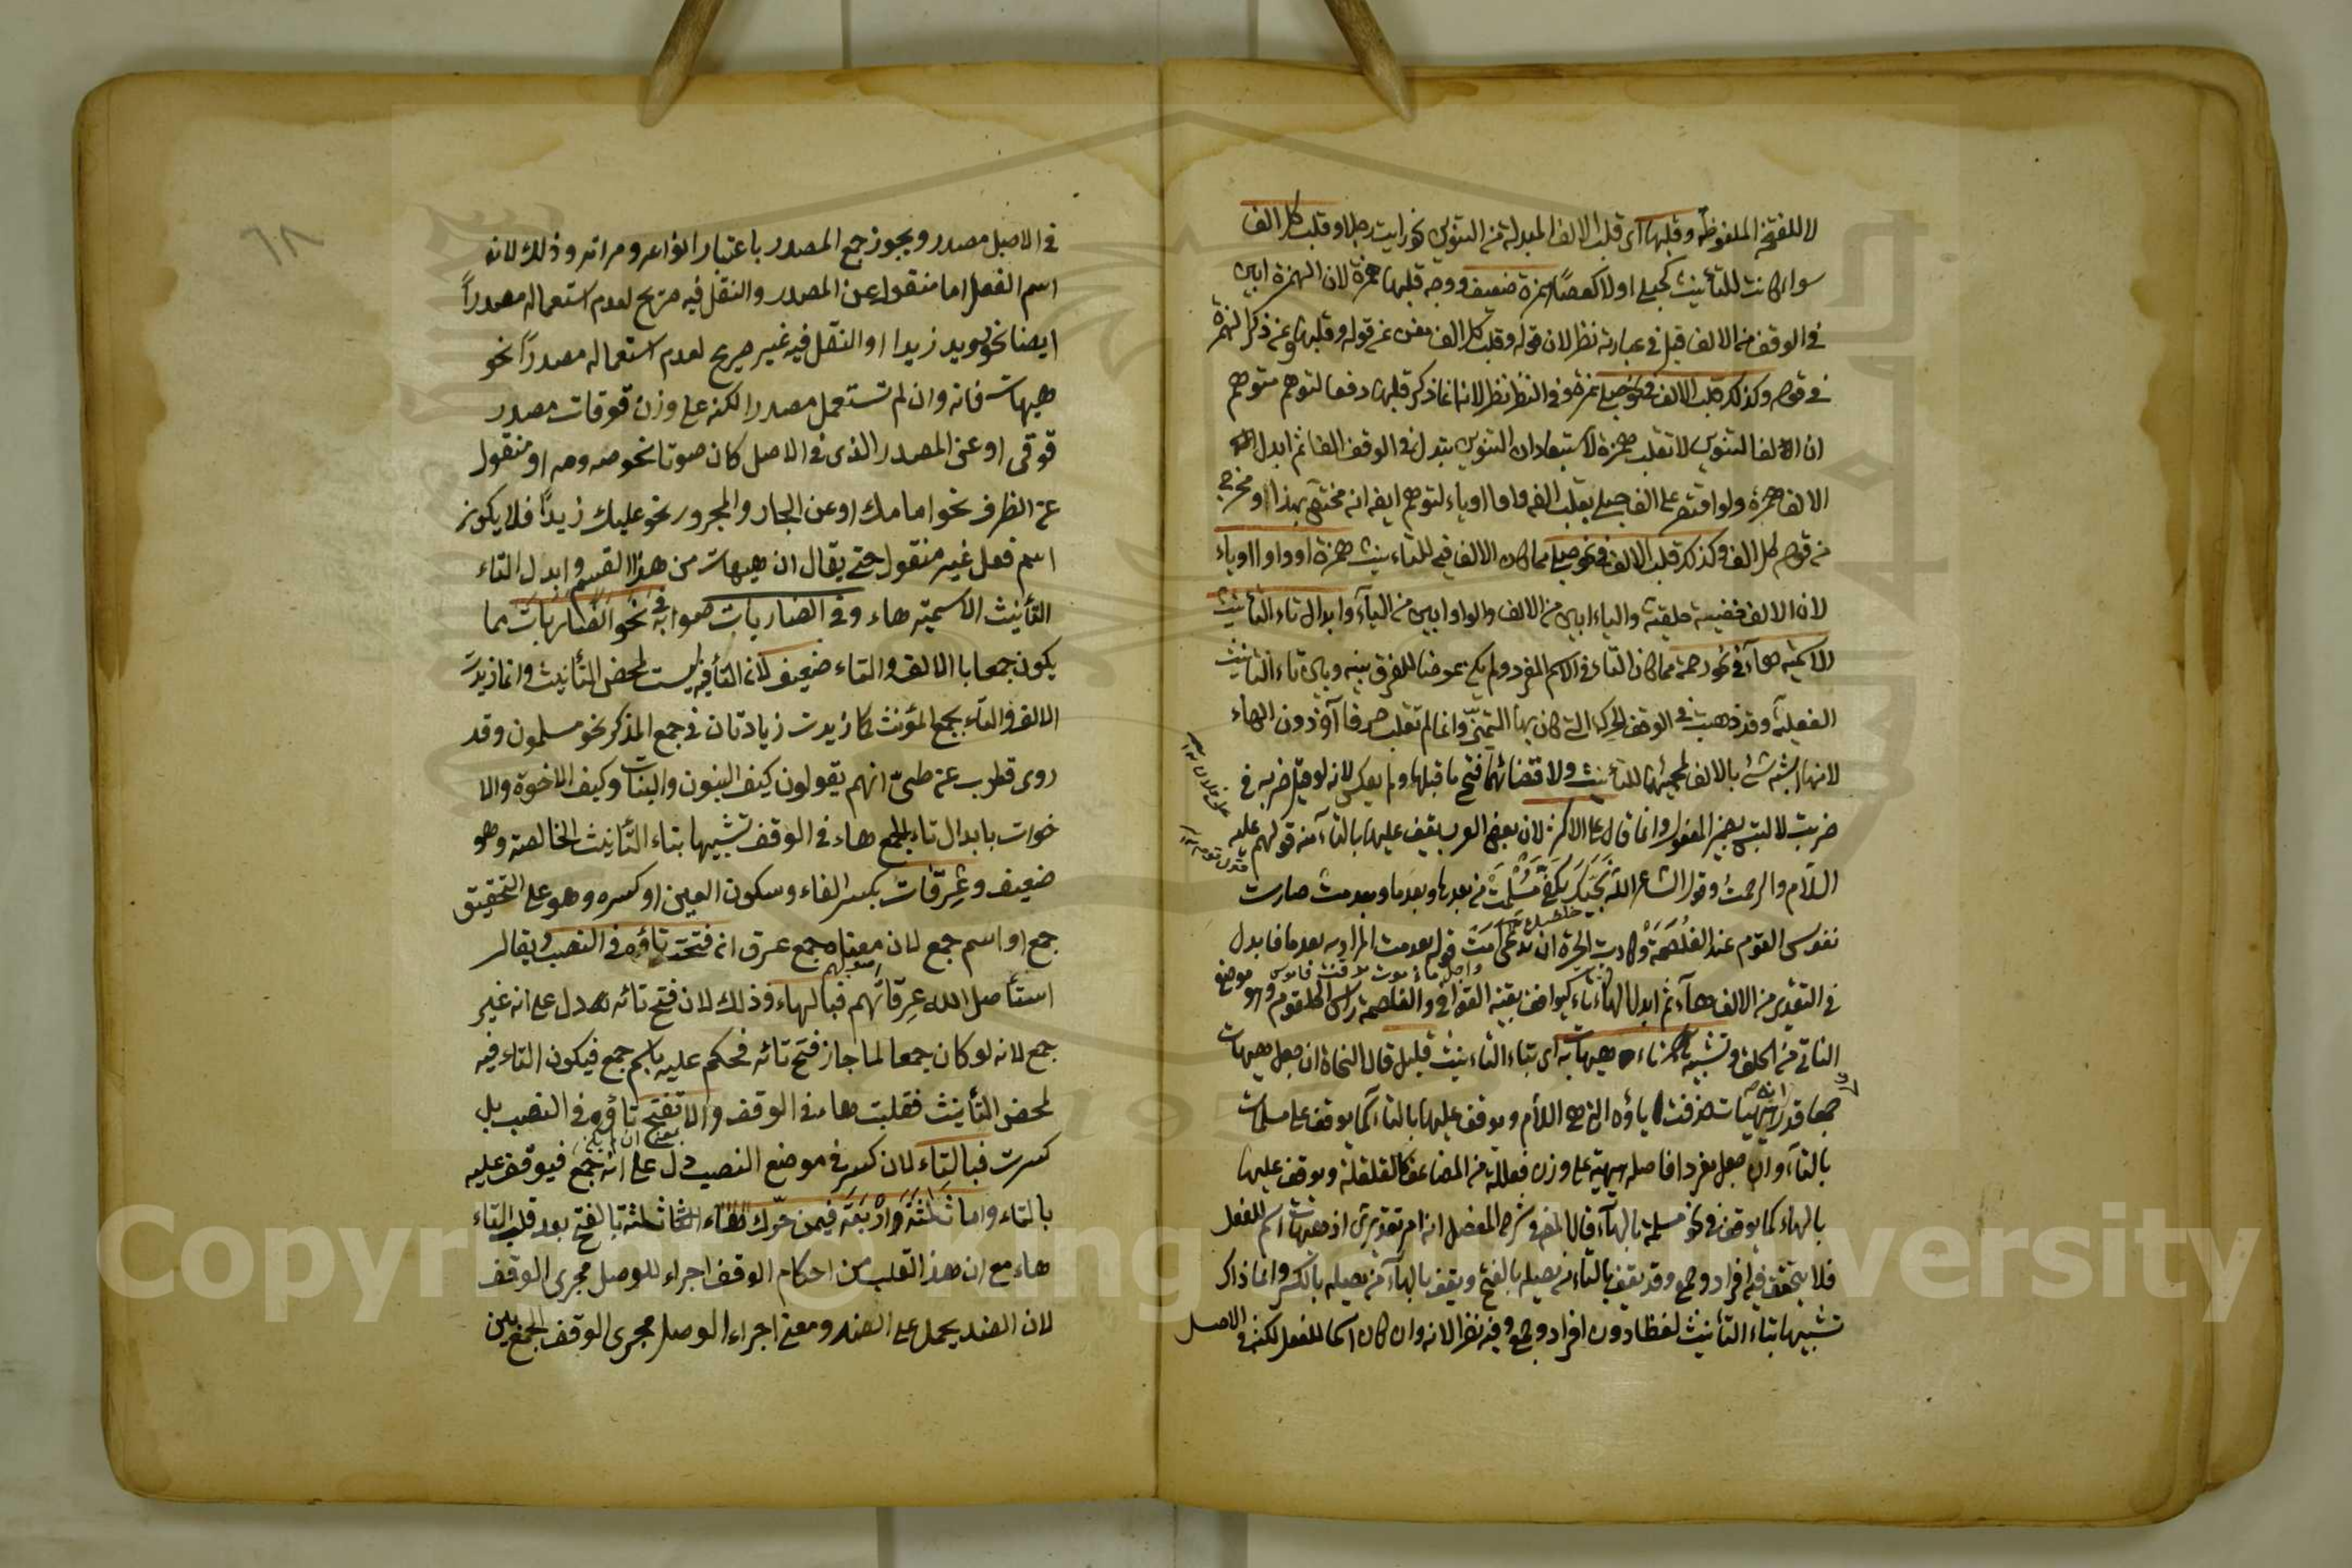 لا للفتحة الملفوظة وقلبها اى قلب الالف المبدلة من التنوين نحو رايت رجلا وقلب كل الف
سواء كانت للتأنيث كحبلى اولا كعصا همزة ضعيف ووجه قلبها همزة لان الهمزة ابين
فى الوقف من الالف قيل فى عبارته نظر لان قوله وقلب كل الف مغن عن قوله وقلبها وعن ذكر الهمزة
فى قوله وكذلك قلب الالف فى نحو حبلى همزة وفى النظر نظر لانه انما ذكر قلبها دفعا لتوهم متوهم
ان الف التنوين لا تقلب همزة لاستبعاد ان التنوين يتبدل فى الوقف الفا ثم ابدل
الالف همزة ولو اقتصر على الف حبلى بقلب الفه واوا او ياء لتوهم ايضا انه مختص بهذا
من قولهم كل الف وكذلك قلب الالف فى نحو حبلى مما كان الالف فيه للتاءنيث همزة او واوا او ياء
لان الالف خفيفة حلقية والياء ابين من الالف والواو ابين من الياء وابدال تاء التأنيث
الاسمية هاء فى نحو رحمة مما كان التاء فى الاسم المفرد ولم يكن عوضا للفرق بينه وبين تاء التأنيث
الفعلية وقد ذهبت فى الوقف الحركة التى كان بها التميز وانما لم تقلب حرفا آخر دون الهاء
لانها اشبه شئ بالالف لمجيئها للتأنيث ولاقتضائهما فتح ما قبلها ولم يعكس لانه لو قيل ضربه فى
ضربت لالتبس بضمير المفعول وانما قال على الاكثر لان بعض العرب يقف عليها بالتاء منه قولهم عليه
السلام والرحمت وقول الشاعر الله نجاك بكفى مسلمت من بعدها وبعدما وبعدمت صارت
نفوس القوم عند الغلصمت وكادت الحرة ان تدعى امت قوله بعدمت المراد به بعدما فابدل
فى التقدير من الالف هاء ثم ابدل الهاء تاء ليوافق بقية القوافى والغلصمة راس الحلقوم وهو موضع
الناتى من الحلق وتشبيه تاء هيهات به اى بتاء التاءنيث قليل قال النحاة ان جعل هيهات
جمعا قدر انه هيهيات حذفت ياؤه التى هى اللام ويوقف عليها بالتاء كما يوقف على مسلمات
بالتاء وان جعل مفردا فاصله هيهية على وزن فعللة من المضاعف كالقلقلة ويوقف عليها
بالهاء كما يوقف فى نحو مسلمة بالهاء قال المص فى شرح المفصل انه امر تقديرى اذ هيهات اسم للفعل
فلا يتحقق فيه افراد وجمع وقد يقف بالتاء من يصله بالفتح ويقف بالهاء من يصله بالكسر وانما ذاك
تشبيها بتاء التأنيث لفظا دون افراد وجمع وفيه نظر لانه وان كان اسما للفعل لكنه فى الاصل
٦٨
فى الاصل مصدر ويجوز جمع المصدر باعتبار انواعه ومراته وذلك لانه
اسم الفعل اما منقول عن المصدر والنقل فيه صريح لعدم استعماله مصدراً
ايضا نحو رويد زيدا او النقل فيه غير صريح لعدم استعماله مصدراً نحو
هيهات فانه وان لم تستعمل مصدرا لكنه على وزن قوقات مصدر
قوقى او عن المصدر الذى فى الاصل كان صوتا نحو صه ومه او منقول
عن الظرف نحو امامك او عن الجار والمجرور نحو عليك زيداً فلا يكون
اسم فعل غير منقول حتى يقال ان هيهات من هذا القسم وابدل التاء
التأنيث الاسمية هاء وفى الضاربات صوابه فى نحو الضاربات مما
يكون جمعا بالالف والتاء ضعيف لان التأ فيه ليست لمحض التأنيث وانما زيدت
الالف والتاء بجمع المؤنث كما زيدت زيادتان فى جمع المذكر نحو مسلمون وقد
روى قطرب عن طىّ انهم يقولون كيف البنون والبنات وكيف الاخوة والا
خوات بابدال تاء الجمع هاء فى الوقف تشبيها بتاء التأنيث الخالصة وهو
ضعيف وعِرقات بكسر الفاء وسكون العين او كسره وهو على التحقيق
جمع او اسم جمع لان معناه جمع عرق انه فتحت تاؤه فى النصب ويقال
استأصل الله عِرقاتهم فبالهاء وذلك لان فتح تائه يدل على انه غير
جمع لانه لو كان جمعا لما جاز فتح تائه فحكم عليه باسم جمع فيكون التاء فيه
لمحض التأنيث فقلبت هاء فى الوقف والا تفتح تاؤه فى النصب بل
كسرت فبالتاء لان كسره فى موضع النصب دل على انه جمع فيوقف عليه
بالتاء واما ثلثة اربعه فيمن حرك الهاء بالفتح بعد قلب التاء
هاء مع ان هذا القلب من احكام الوقف اجراء للوصل مجرى الوقف
لان الضد يحمل على الضد ومعنى اجراء الوصل مجرى الوقف الجمع بين
Copyright © King Saud University